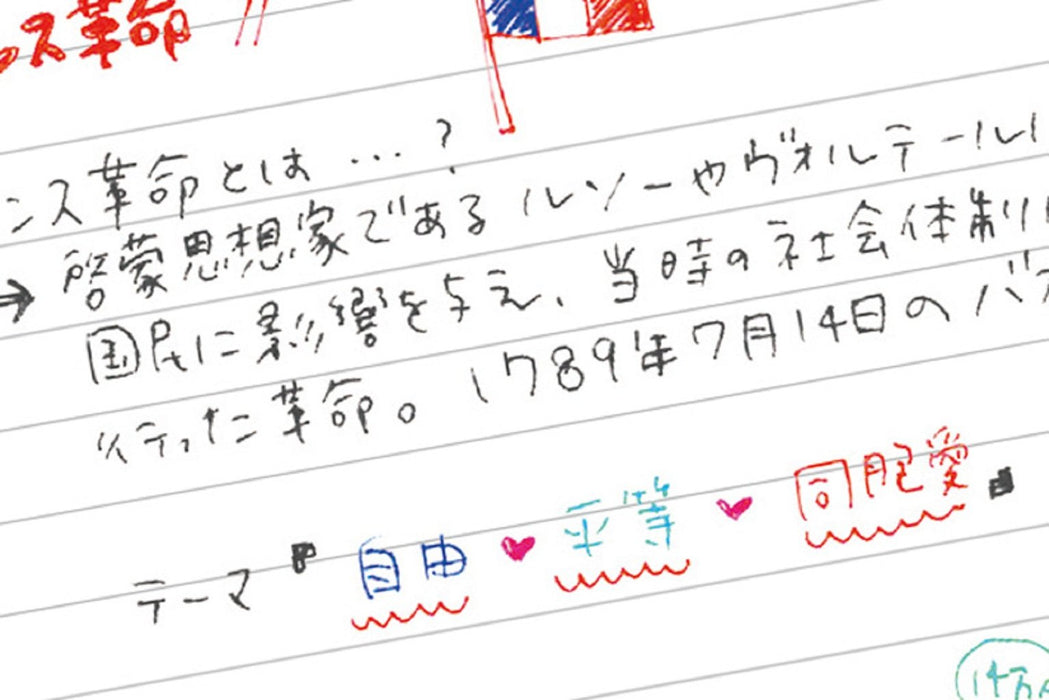 ス革命
ンス革命とは…?
→ 啓蒙思想家であるルソーやヴォルテール
国民に影響を与え、当時の社会体制
行った革命。1789年7月14日のバ
テーマ『自由♥平等♥同胞愛』